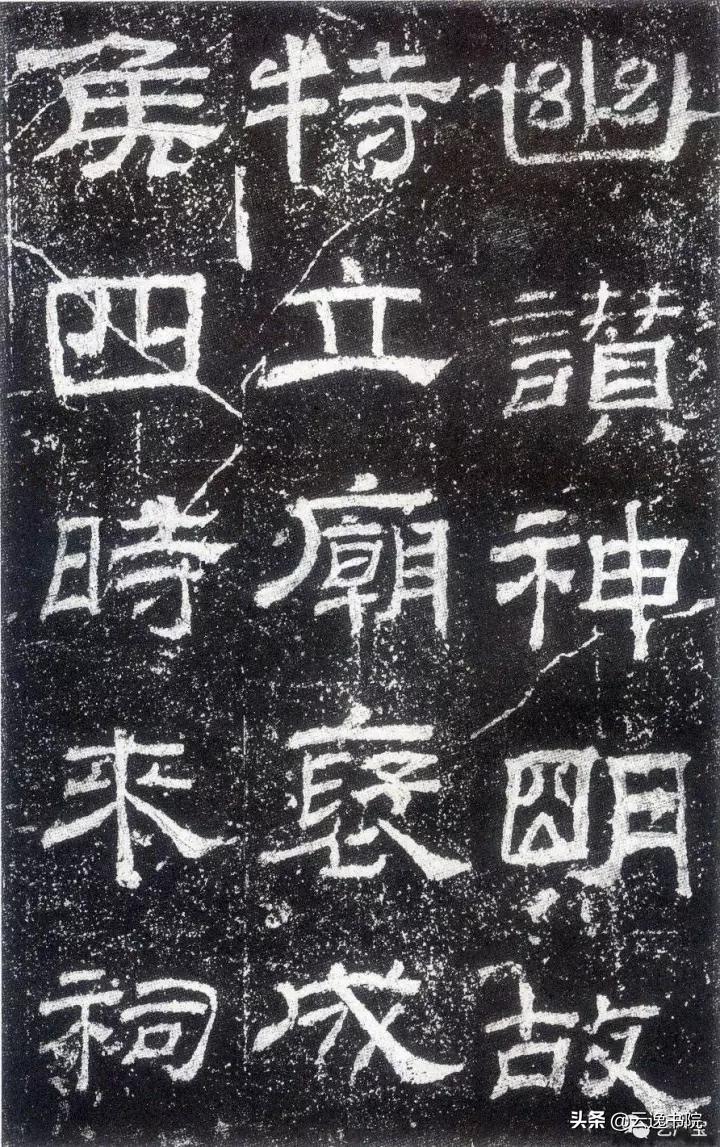 幽讚神明故
特立廟褒成
侯四時來祠
头条 @云逸书院